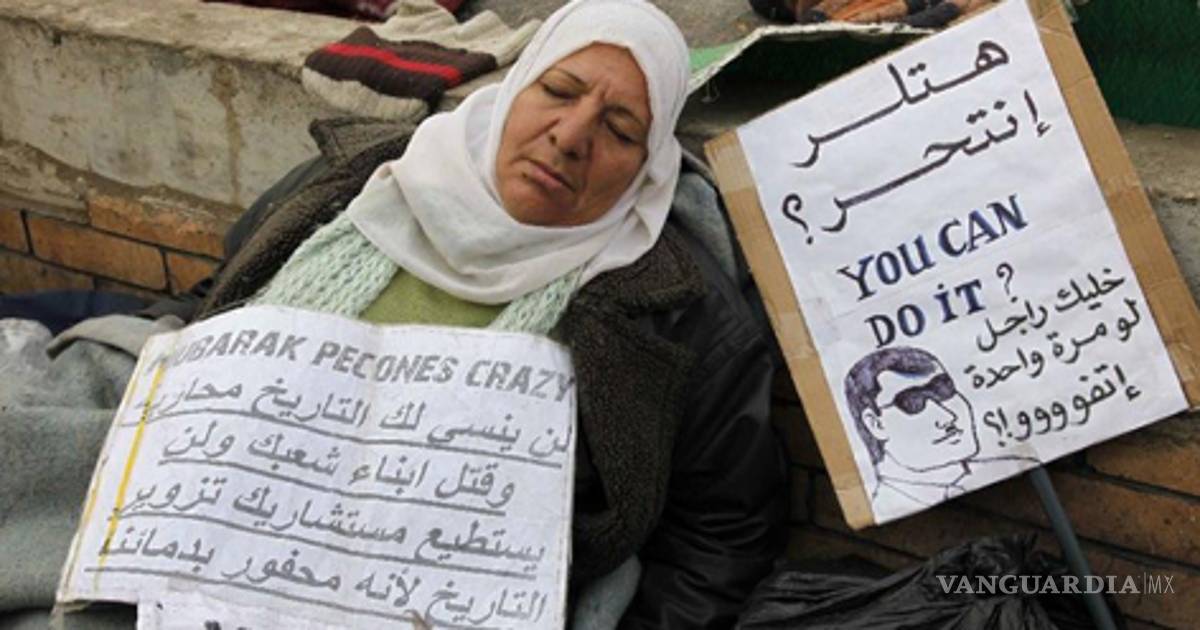 MUBARAK PECONES CRAZY
لن ينسي لك التاريخ محاربة
وقتل ابناء شعبك ولن
يستطيع مستشاريك تزوير
التاريخ لأنه محفور بدمائنا
هتلر
إنتحر؟
YOU CAN
DO iT ?
خليك راجل
لو مرة واحدة
إتفوووو!؟
VANGUARDIA|MX